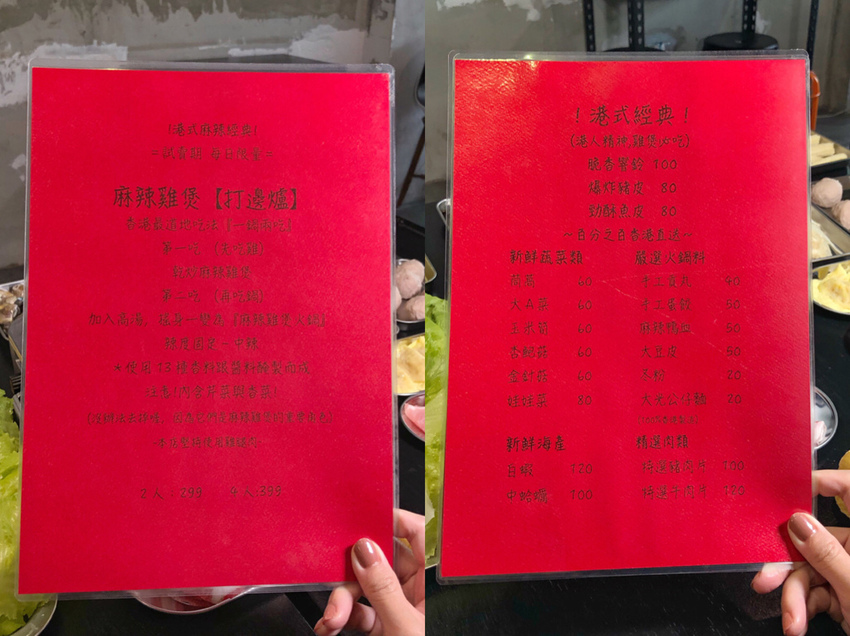 !港式麻辣經典!
=試賣期 每日限量=
麻辣雞煲【打邊爐】
香港最道地吃法【一鍋兩吃】
第一吃 (先吃雞)
乾炒麻辣雞煲
第二吃 (再吃鍋)
加入高湯，搖身一變為『麻辣雞煲火鍋』
辣度固定-中辣
*使用 13 種香料跟醬料醃製而成
注意!內含芹菜與香菜!
本店堅持使用雞腿肉
2 人:299
人:399
!港式經典!
(港人精神,雞煲必吃)
脆香響鈴 100
爆炸豬皮 80
勁酥魚皮 80
~百分之百香港直送~
新鮮蔬菜類
茼蒿 60
大A菜 60
玉米筍 60
香鮑菇 60
金針菇 60
娃娃菜 80
嚴選火鍋料
手工貢丸 90
手工蛋餃 50
麻辣鴨血 50
大豆皮 50
冬粉 20
大光公仔麵 20
新鮮海產
白蝦 120
中蛤蠣 100
精選肉類
特選豬肉片 100
特選牛肉片 120